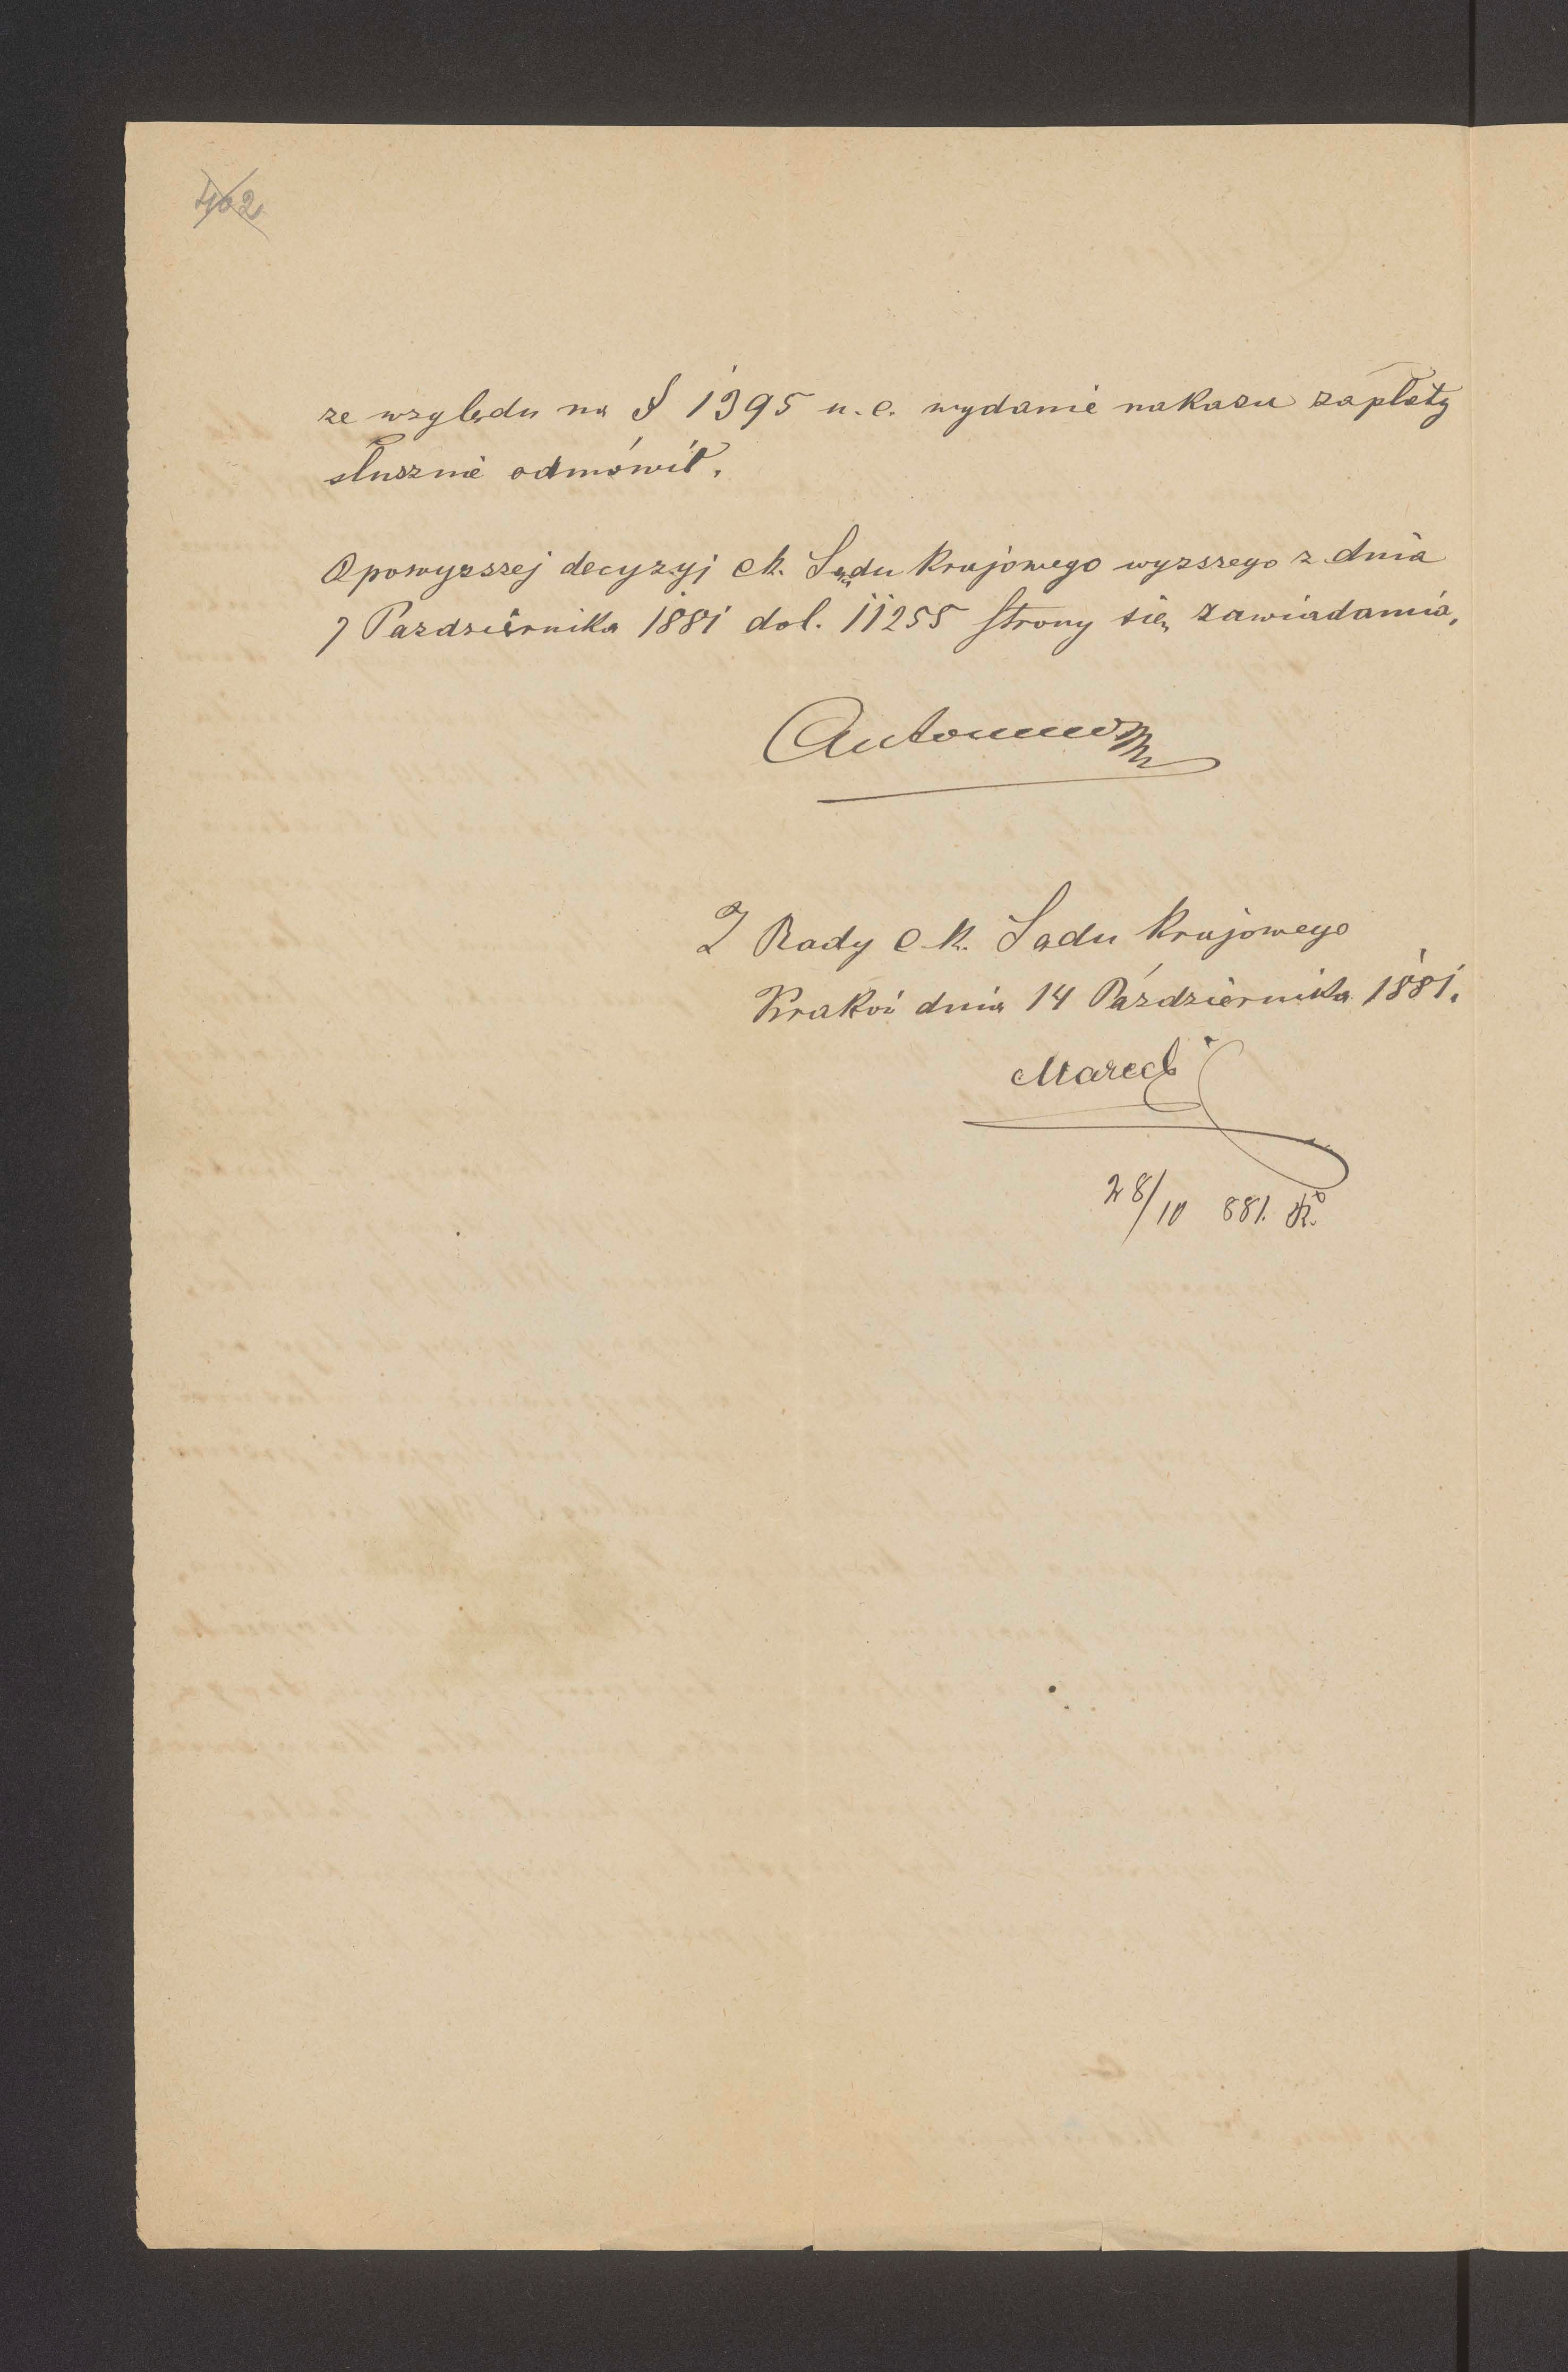 402
ze względu na § 1395 u.c. wydanie nakazu zapłaty
słusznie odmówił.
O powyższej decyzyj ck. Sądu krajowego wyzszego z dnia
7 Pazdziernika 1881 dol. 11255 strony się zawiadamia,
Z Rady c.k. Sadu krajowego
Kraków dnia 14 Października 1881.
28/10 881.